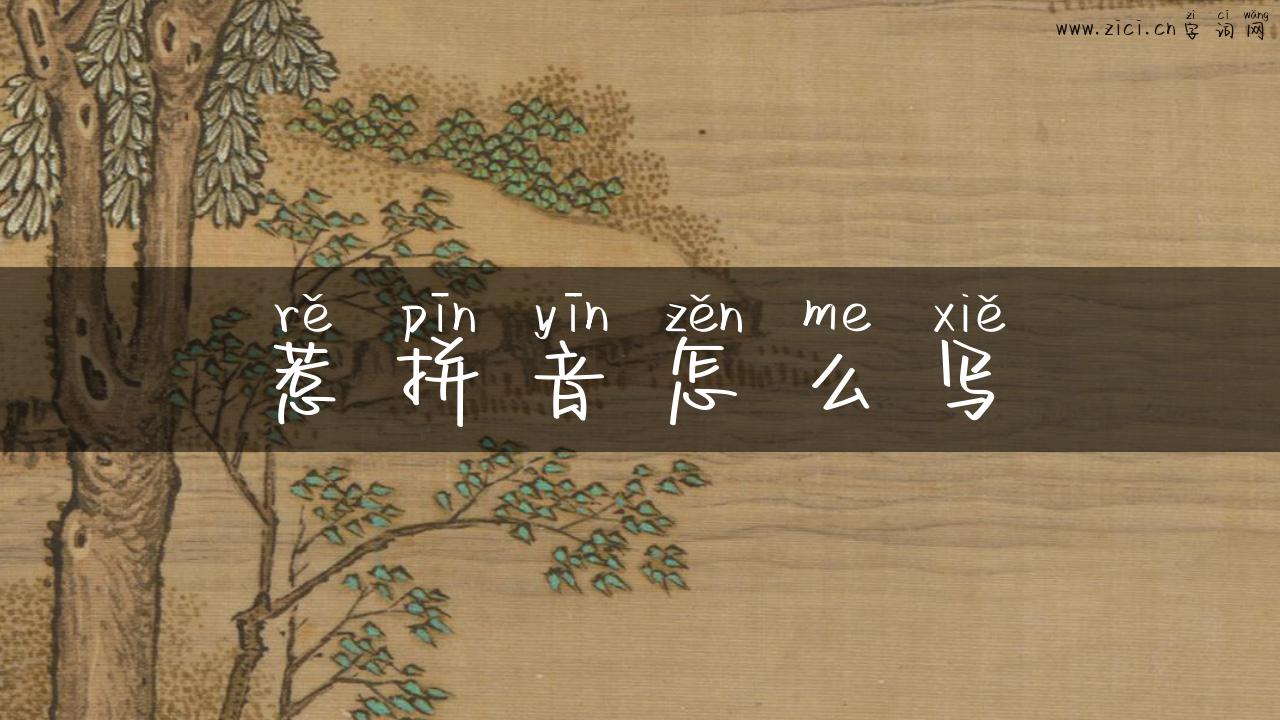 zì cí wǎng
www.zici.cn 字 词 网
rě pīn yīn zěn me xiě
惹 拼 音 怎 么 写